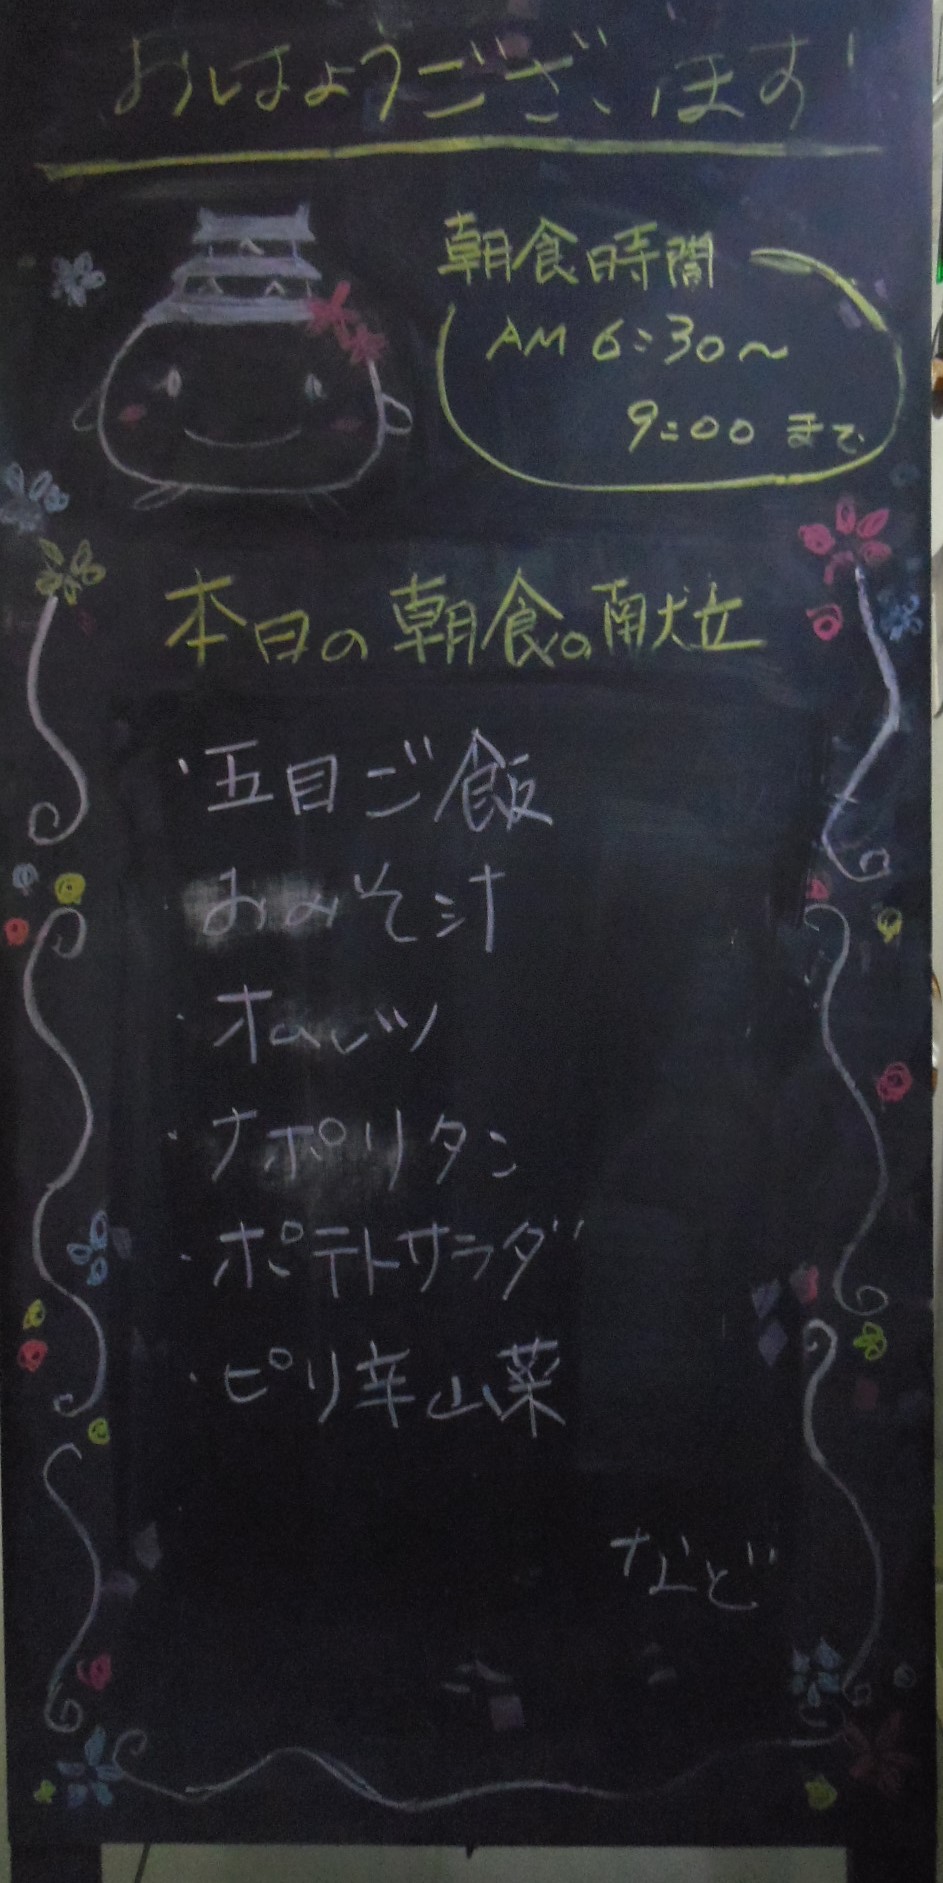 おはようございます!
朝食時間
AM 6:30〜
9:00 まで
本日の朝食の献立
・五目ご飯
・おみそ汁
・オムレツ
・ナポリタン
・ポテトサラダ
・ピリ辛山菜
など